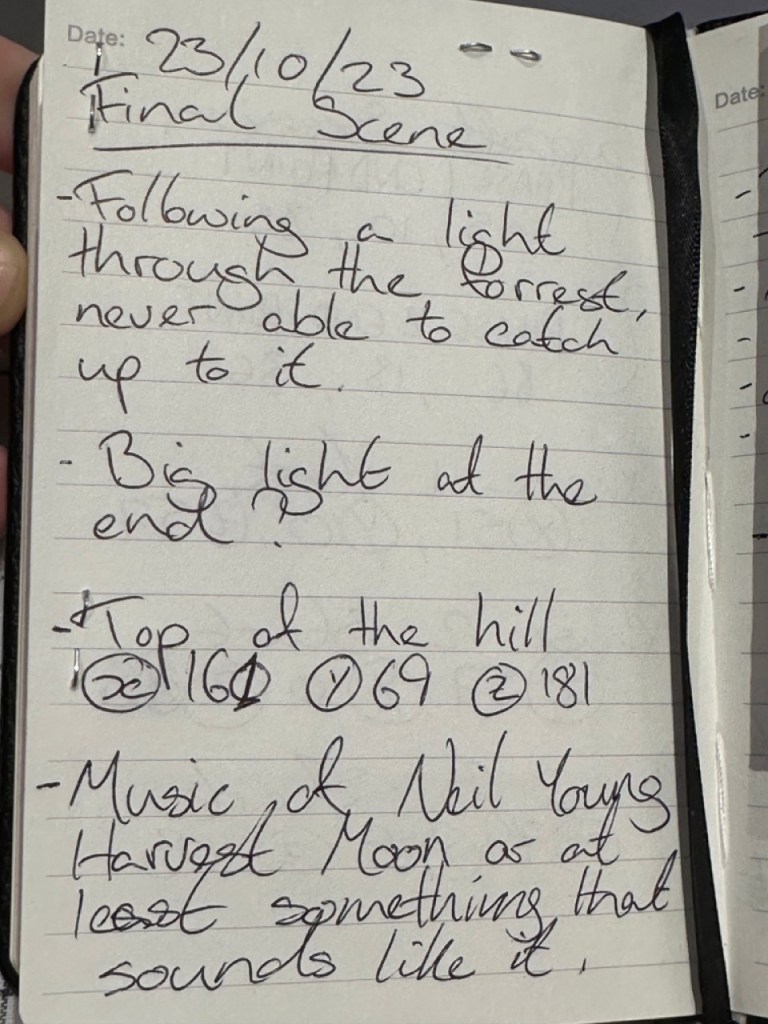 Date: 23/10/23
Final Scene
-Following a light
through the forrest,
never able to catch
up to it.
- Big light at the
end?
-Top of the hill
x 161 y 69 z 181
-Music of Neil Young
Harvest Moon or at
least something that
sounds like it.
Date: